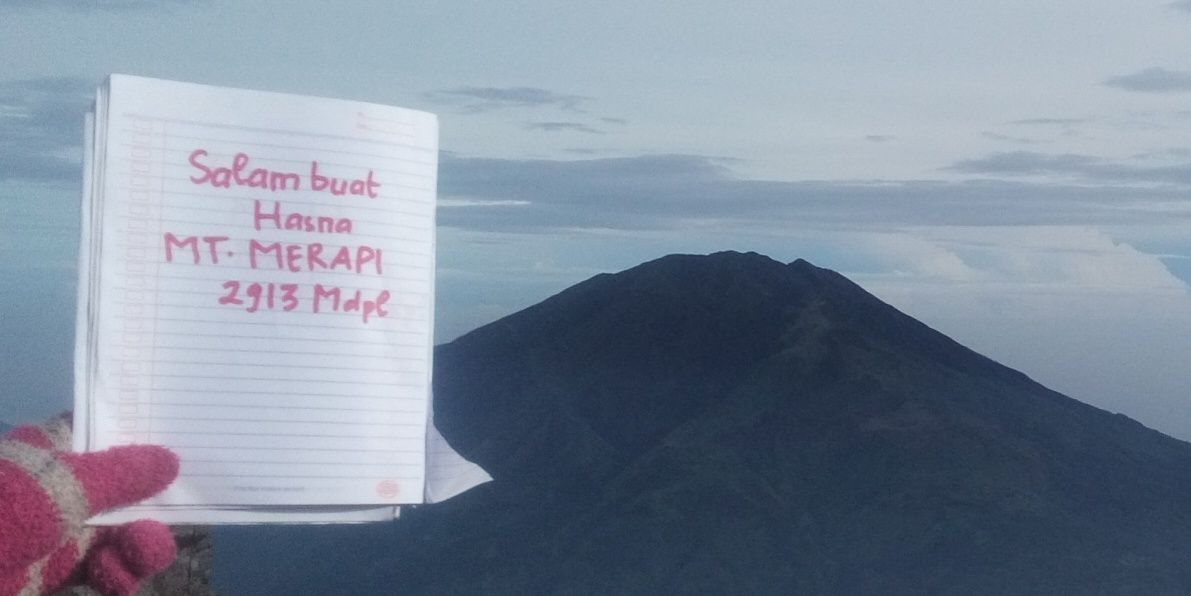 Salam buat
Hasna
MT. MERAPI
2913 Mdpl